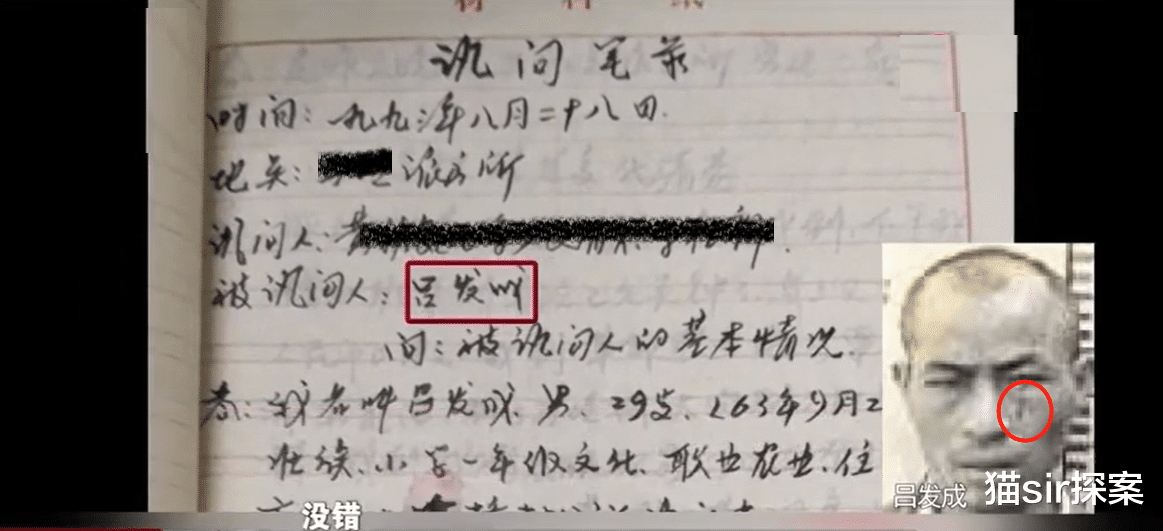 讯问笔录
时间：一九九二年八月二十八日.
地点：派出所
讯问人：
被讯问人：吕发成
问：被讯问人的基本情况.
答：我名叫吕发成、男、29岁、(63年9月2
壮族、小学一年级文化、职业农业、住
吕发成
猫sir探案
没错